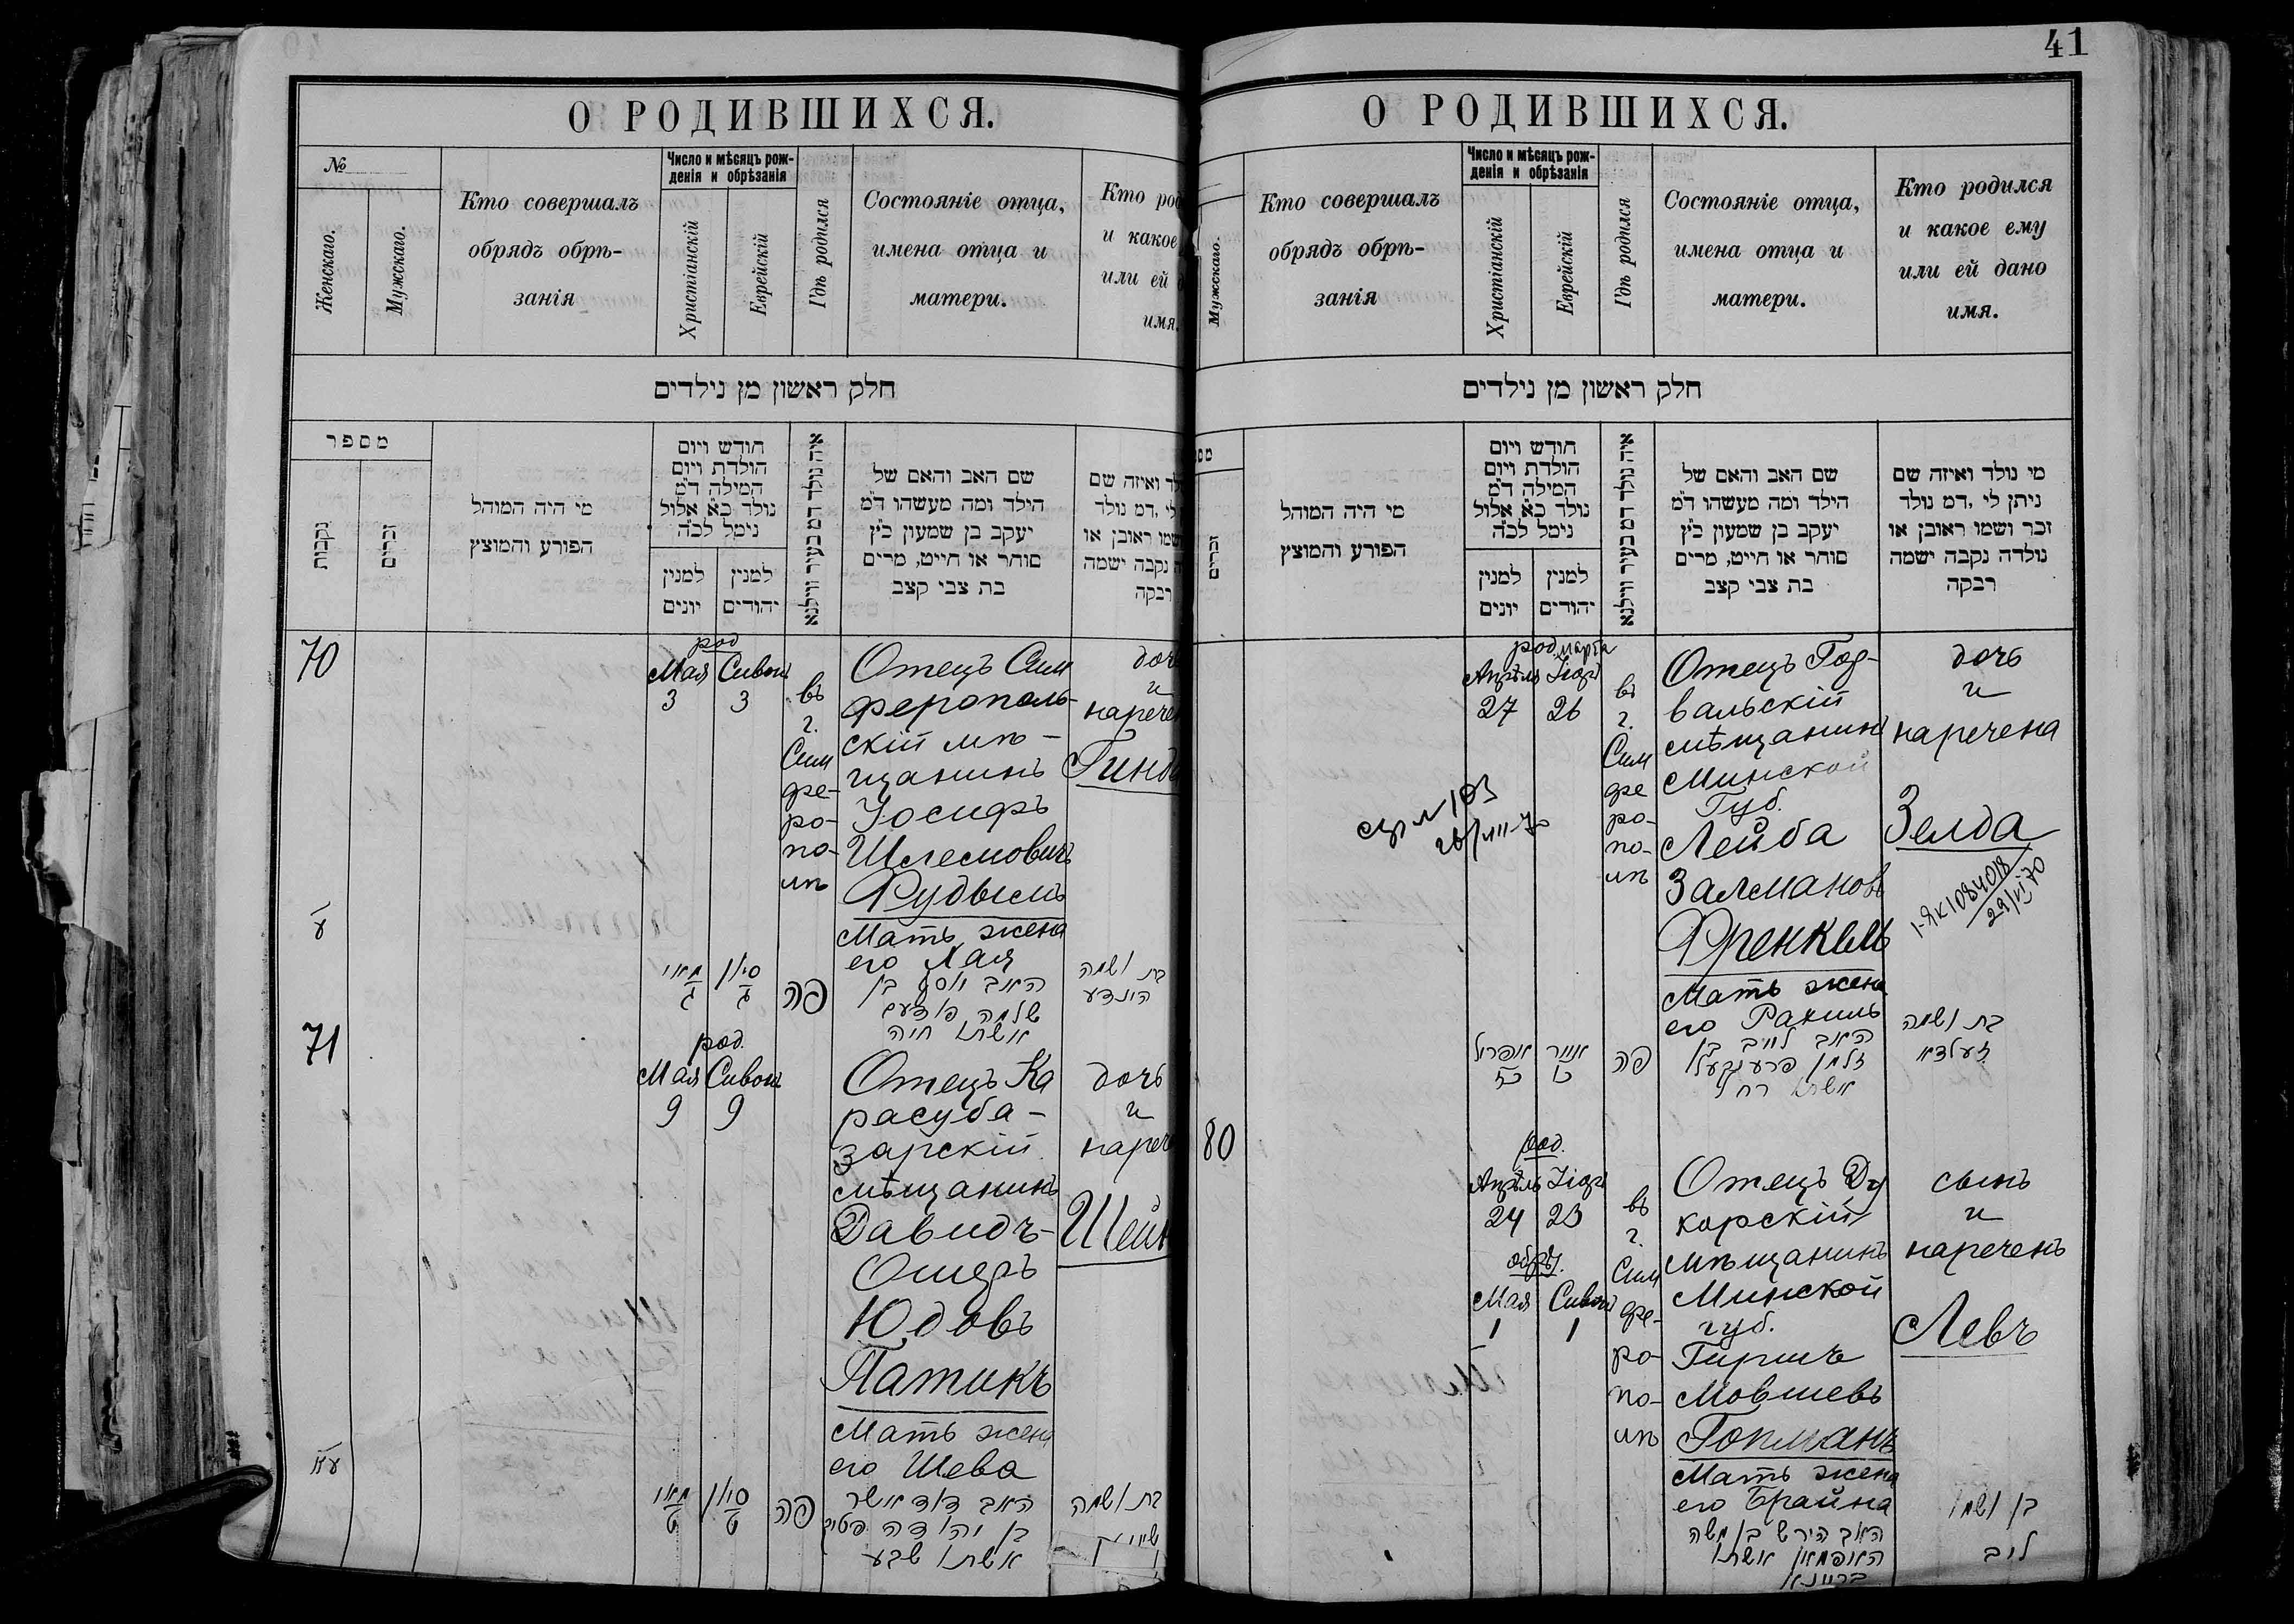 41
О РОДИВШИХСЯ.
№
Женскаго.
Мужскаго.
Кто совершалъ
обрядъ обрѣ-
занія
Число и мѣсяцъ рож-
денія и обрѣзанія
Христіанскій
Еврейскій
Гдѣ родился
Состояніе отца,
имена отца и
матери.
Кто род
и какое
или ей д
имя.
חלק ראשון מן נילדים
מספר
נקבות
זכרים
מי היה המוהל
הפורע והמוצץ
חודש ויום
הולדת ויום
המילה ד״מ
נולד כ״א אלול
נימל לכ״ה
למנין
יונים
למנין
יהודים
איה נולד דמ בעיר ווילנא
שם האב והאם של
הילד ומה מעשהו ד״מ
יעקב בן שמעון כ״ץ
סוחר או חייט, מרים
בת צבי קצב
לד ואיזה שם
לי ,דמ נולד
שמו ראובן או
ה נקבה ישמה
רבקה
70
род
Мая Сивон
3 3
въ
г.
Сим
фе-
ро-
по-
лѣ
Отецъ Сим
ферополь-
скій мѣ-
щанинъ
Іосифъ
Шлемовичъ
Рудымъ
Мать жена
его Хая
дочь
и
наречен
Гинд
מאי
ג
סיון
ג
פה
האב יוסף בן
שלמה
אשתו חיה
בת ושמה
הינדע
71
род.
Мая Сивонъ
9 9
Отецъ Ка
расуба-
зарскій
мѣщанинъ
Давидъ-
Ошеръ
Юдовъ
Патикъ
Мать жена
его Шева
дочь
и
нареч
Шейн
מאי
ט
סיון
ט
פה
האב דוד אשר
בן יהודה פטיק
אשתו שבע
בת ושמה
О РОДИВШИХСЯ.
Мужскаго.
Кто совершалъ
обрядъ обрѣ-
занія
Число и мѣсяцъ рож-
денія и обрѣзанія
Христіанскій
Еврейскій
Гдѣ родился
Состояніе отца,
имена отца и
матери.
Кто родился
и какое ему
или ей дано
имя.
חלק ראשון מן נילדים
מס
זכרים
מי היה המוהל
הפורע והמוצץ
חודש ויום
הולדת ויום
המילה ד״מ
נולד כ״א אלול
נימל לכ״ה
למנין
יונים
למנין
יהודים
איה נולד דמ בעיר ווילנא
שם האב והאם של
הילד ומה מעשהו ד״מ
יעקב בן שמעון כ״ץ
סוחר או חייט, מרים
בת צבי קצב
מי נולד ואיזה שם
ניתן לי ,דמ נולד
זכר ושמו ראובן או
נולדה נקבה ישמה
רבקה
род. марта
Апрѣля Іяръ
27 26
въ
г.
Сим
фе
ро-
по-
лѣ
Отецъ Гор-
вальскій
мѣщанинъ
Минской
Губ.
Лейба
Залмановъ
Френкель
Мать жена
его Рахиль
дочь
и
наречена
Зелда
1-ЯК 1084018
29/VI 70
אפריל
כז
אייר
פה
האב לייב בן
זלמן פרענקעל
אשתו רחל
בת ושמה
זעלדא
80
род.
Апрѣль Іяръ
24 23
обрѣз.
Мая Сивонъ
1 1
въ
г.
Сим
фе-
ро-
по-
лѣ
Отецъ Ду
корскій
мѣщанинъ
Минской
губ.
Гиршъ
Мовшевъ
Гопманъ
Мать жена
его Брайна
сынъ
и
нареченъ
Левъ
האב הירש בן משה
האפמאן אשתו
בריינא
בן ושמו
ליב